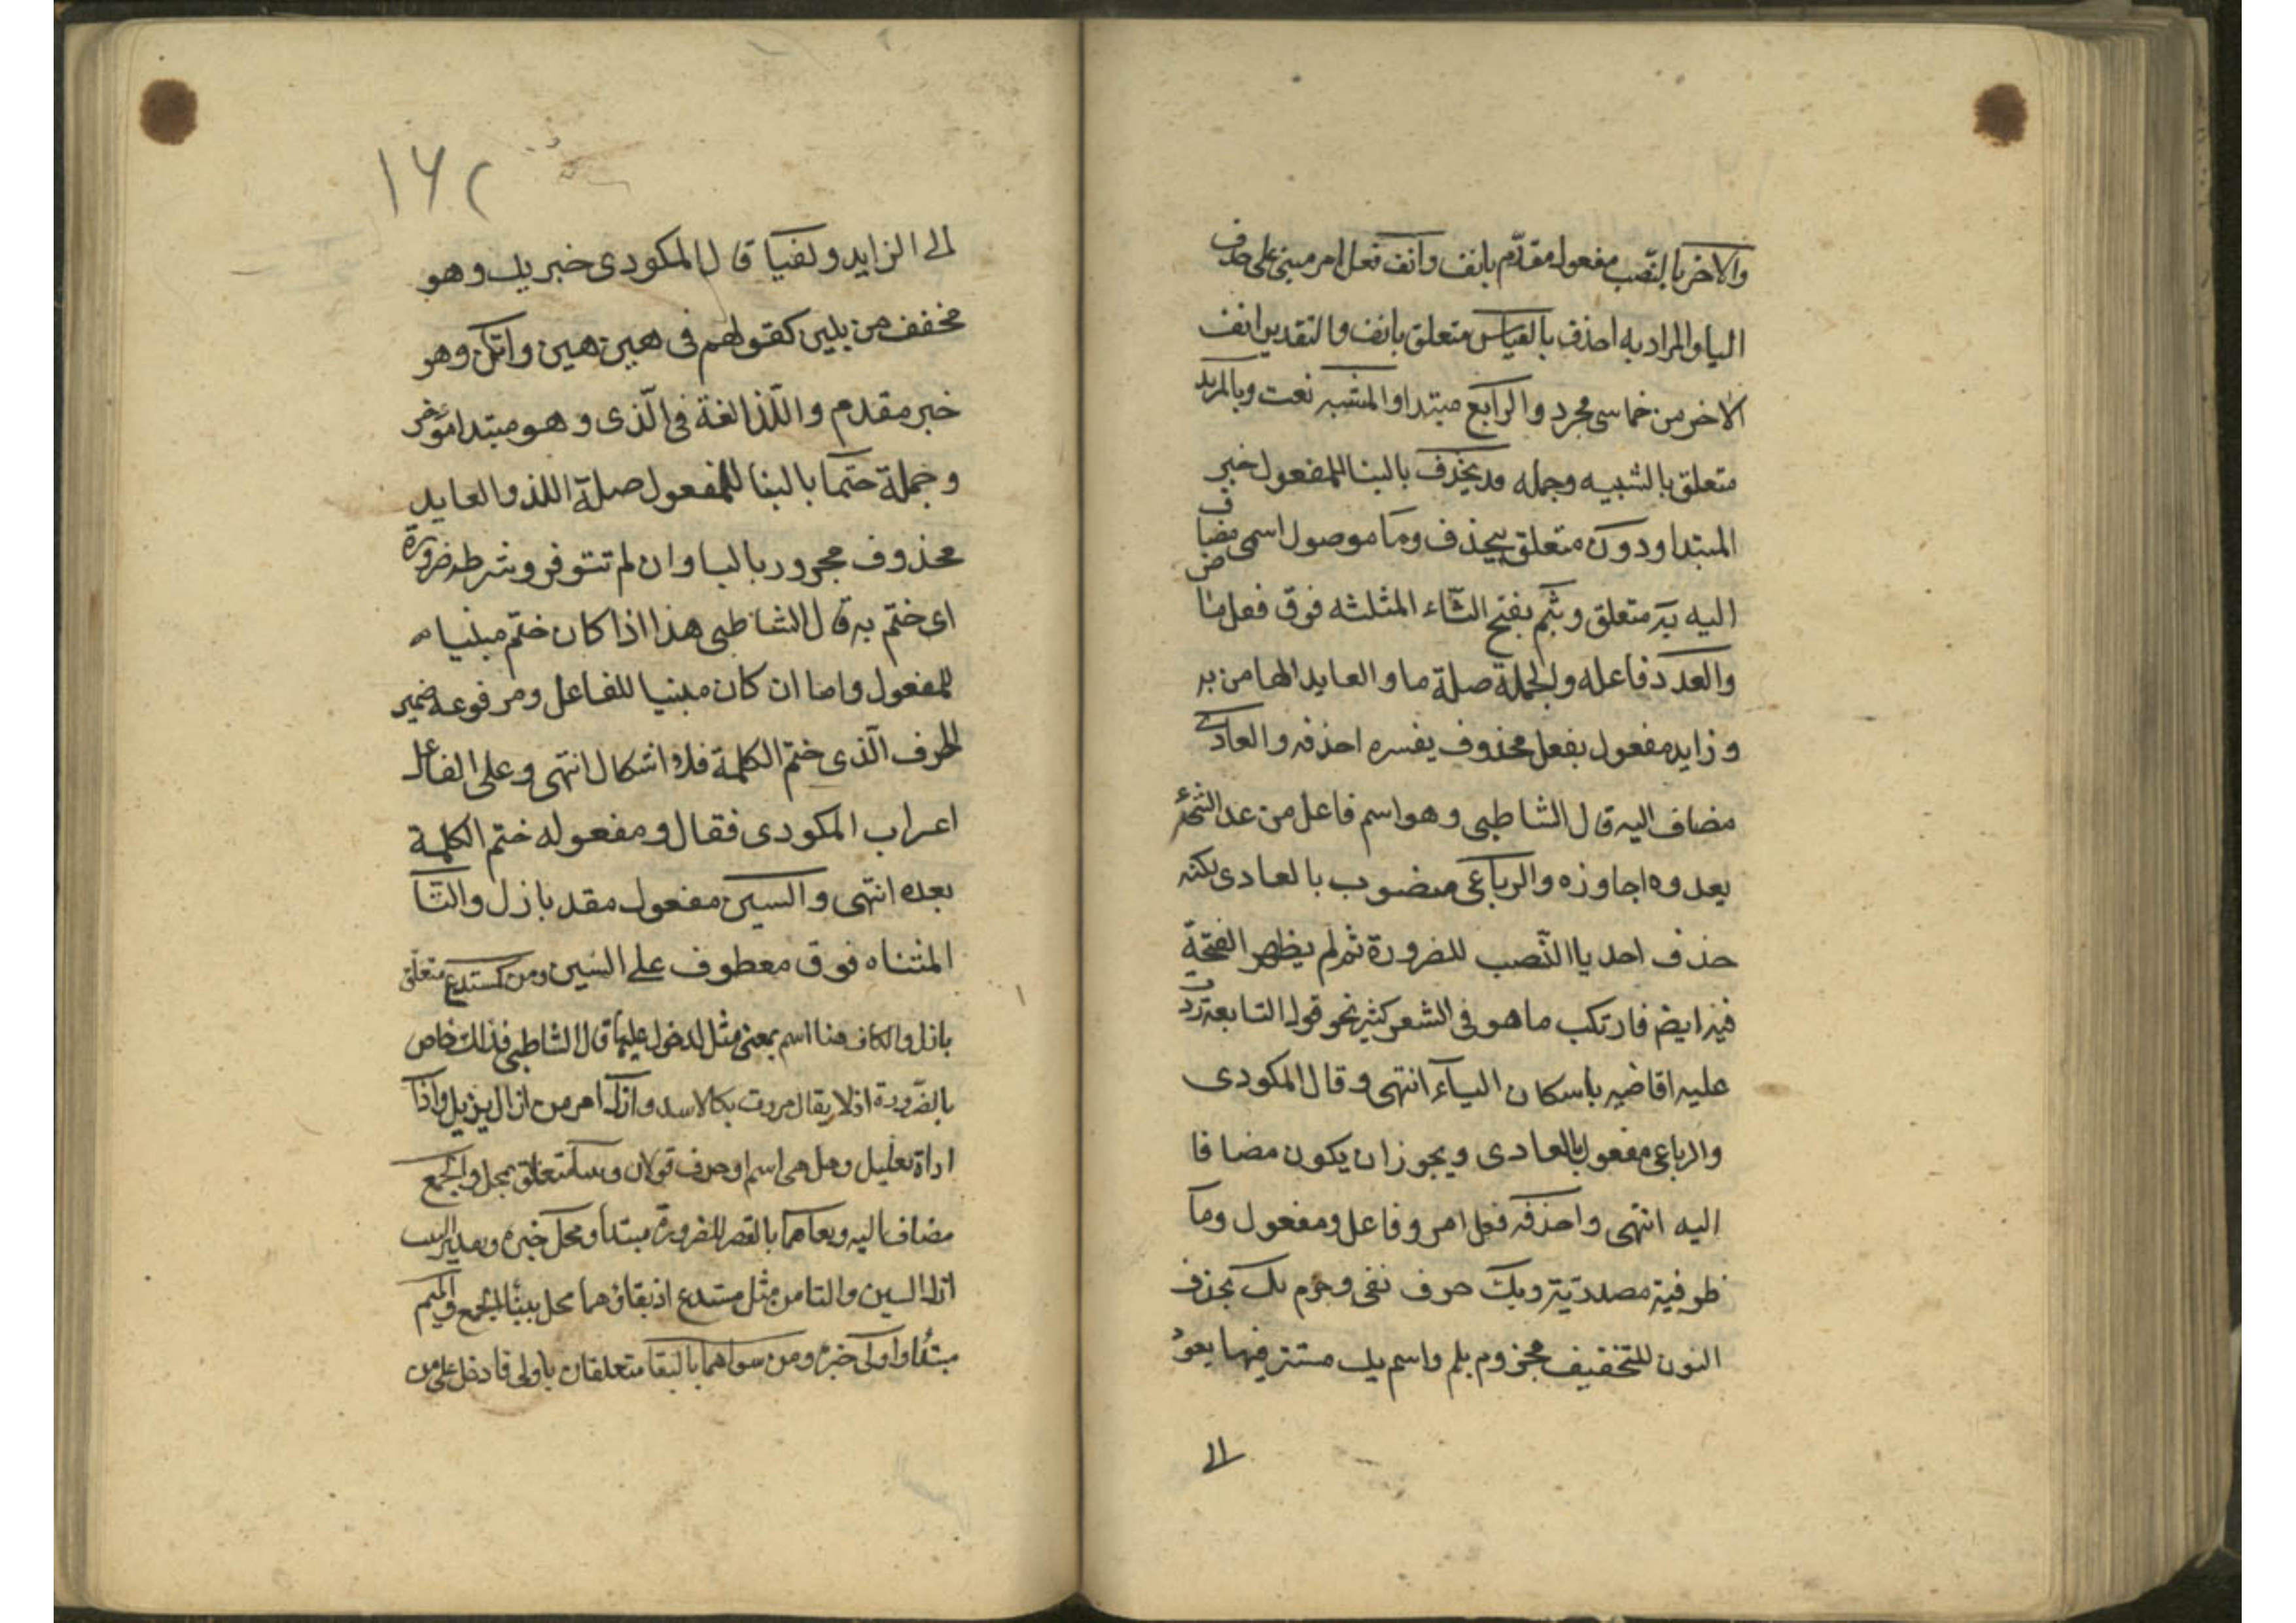 والاخر بالنّصب مفعول مقدّم بانف وانف فعل امر مبنى على حذف
اليا والمراد به احذف بالقياس متعلق بانف والتقدير انف
الاخر من خماسى مجرد والرابع مبتدا والمشبه نعت وبالمزيد
متعلق بالشبيه وجمله قد يحذف بالبنا للمفعول خبر
المبتدا ودون متعلق بيحذف وما موصول اسمى مضاف
اليه به متعلق وبتم بفتح الثّاء المثلثه فوق فعل ماض
والعدد فاعله والجملة صلة ما والعايد الها من به
وزايد مفعول بفعل محذوف يفسره احذفه والعادى
مضاف اليه قال الشاطبى وهو اسم فاعل من عدا الشئ
يعدوه اجاوزه والرباعى منصوب بالعادى لكنه
حذف احد ياا النّصب للضرورة ثم لم يظهر الفتحة
فيه ايضا فارتكب ما هو فى الشعر كثير نحو قول النابعة ردت
عليه اقاضيه باسكان اليآء انتهى وقال المكودى
والرباعى مفعول بالعادى ويجوز ان يكون مضافا
اليه انتهى واحذفه فعل امر وفاعل ومفعول وما
ظرفية مصدديّة ويك حرف نفى وجزم يك بحذف
النون للتخفيف مجزوم بلم واسم يك مستتر فيها يعود
الى
١٦٢
الى الزايد ولفيا قال المكودى خبر يك وهو
مخفف من بلين كقولهم فى هين هين واتكن وهو
خبر مقدم واللّذا لغة فى الّذى وهو مبتدا مؤخر
وجملة ختما بالبنا للمفعول صلة اللذ والعايد
محذوف مجرور بالبا وان لم تتوفر وشرطه ضرورة
اى ختم به قال الشاطبى هذا اذا كان ختم مبنيا
للمفعول واما ان كان مبنيا للفاعل ومرفوعه ضمير
الحرف الّذى ختم الكلمة فلا اشكال انتهى وعلى الفاعل
اعراب المكودى فقال ومفعوله ختم الكلمة
بعده انتهى والسين مفعول مقد بازل والتّا
المثناه فوق معطوف على السين ومن كمستدع متعلق
بازل والكاف هنا اسم بمعنى مثل لدخول عليها قال الشاطبى فذلك خاص
بالضّرورة اذ لا يقال مررت بكالاسد وازل امر من ازال يزيل واذا
اداة تعليل وهل هى اسم او حرف قولان متعلق بمحل والجمع
مضاف اليه وبقاهما بالقصر للضرورة مبتدا ومحل خبره
ازل السين والتا من مثل مستدع اذ بقاؤهما محل ببنا الجمع والميم
مبتدا واولى خبره ومن سواهما بالبقا متعلقان باولى فادخل على من